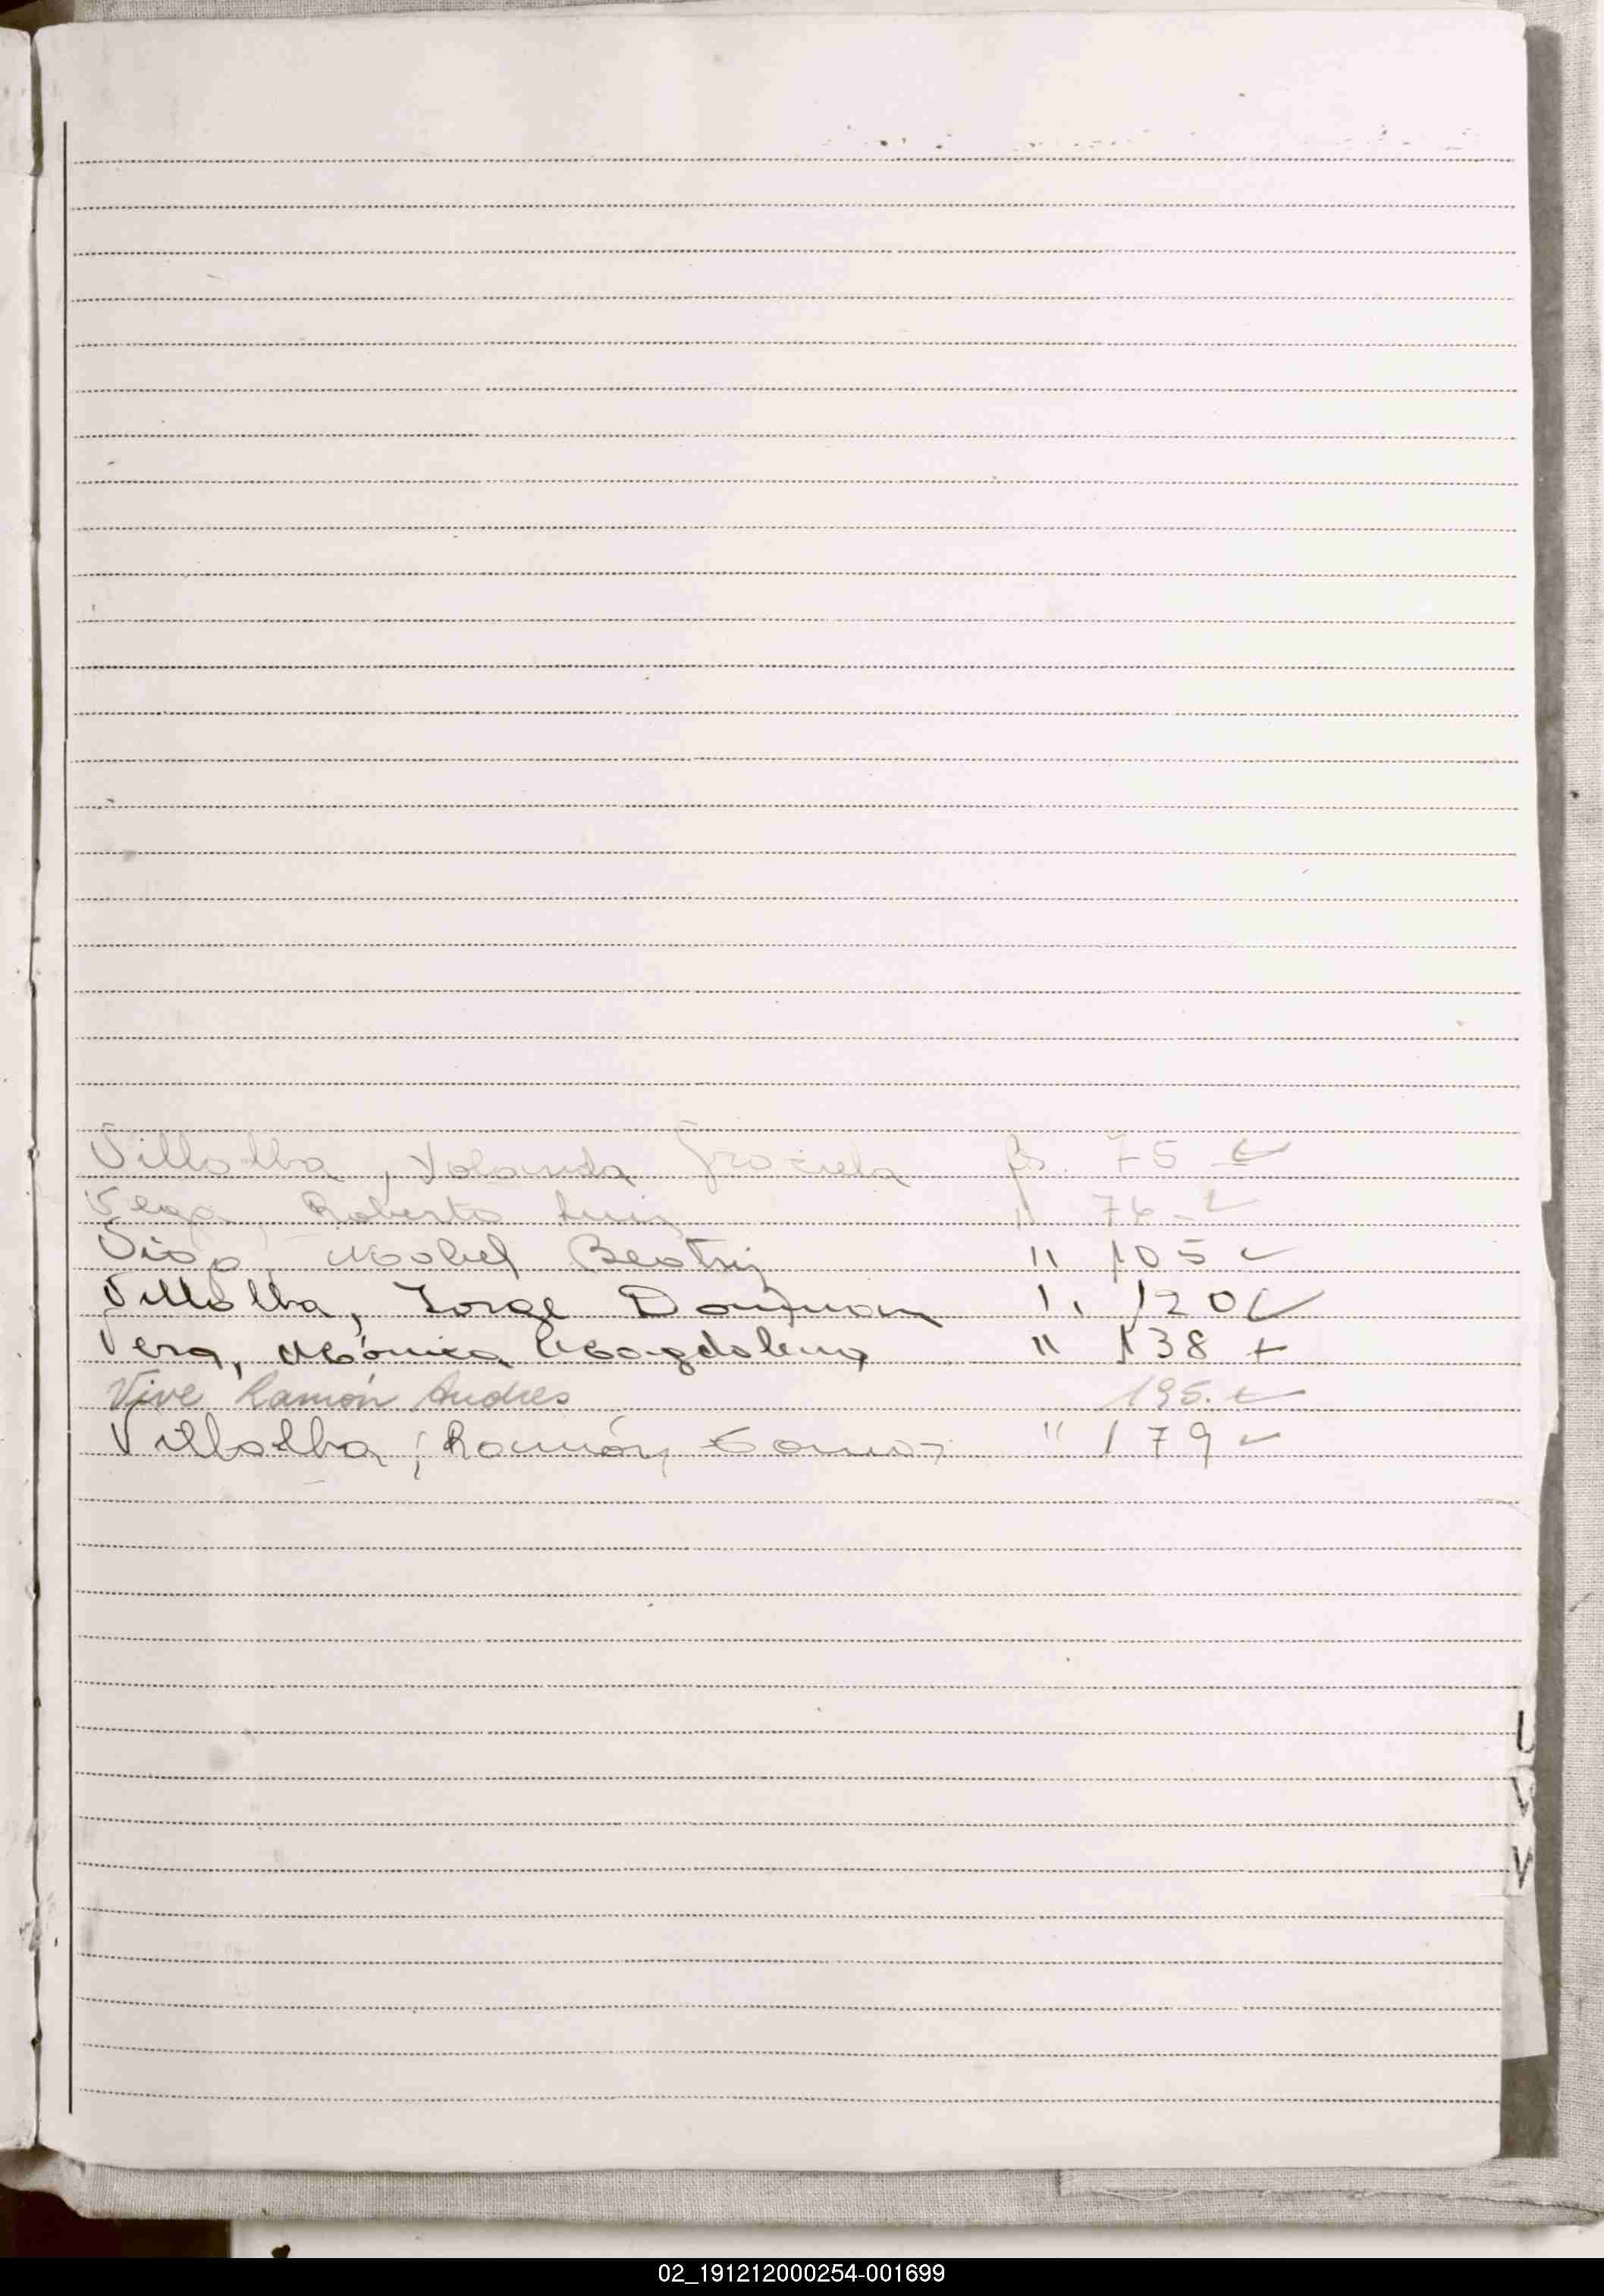 Villalba, Yolanda Graciela fs. 75
Vega, Roberto Luis " 76
Mabel Beatriz " 105
Villalba, Jorge " 120
Vera, Mónica Magdalena " 138 +
Vive Ramón Andres 195.
Villalba, Ramón " 179
U
V
V
02_191212000254-001699